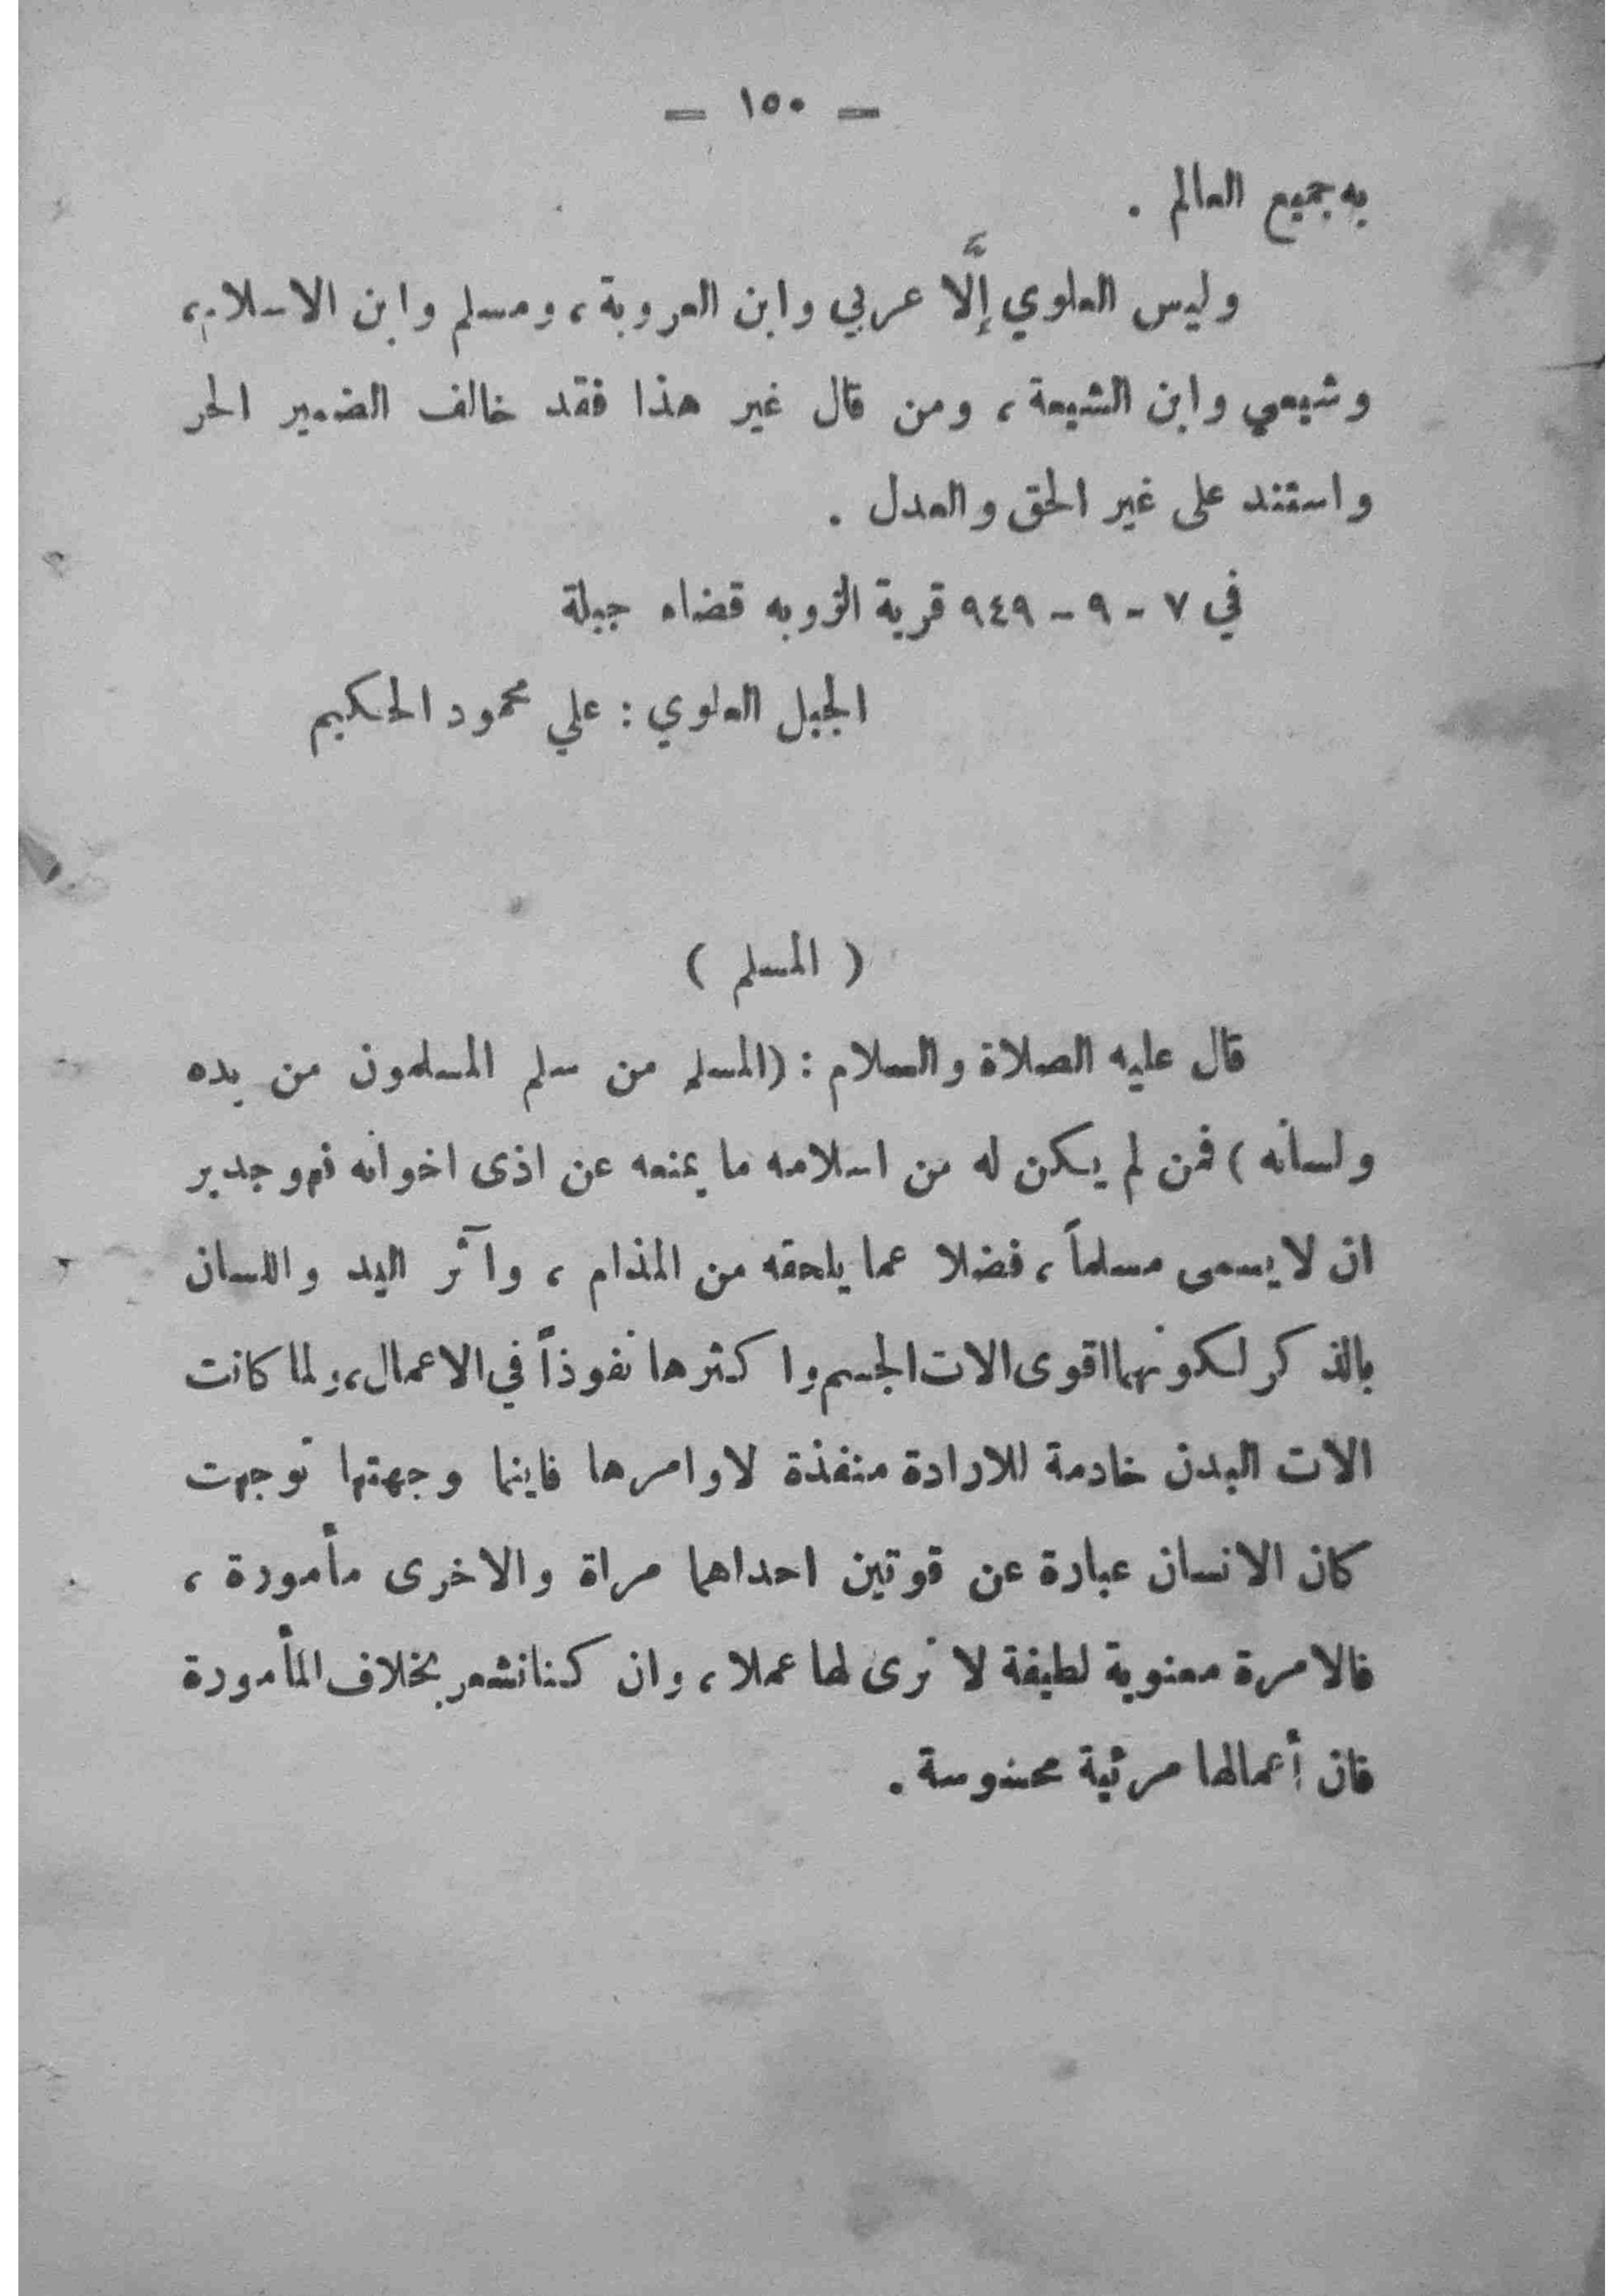 — ١٥٠ —
به جميع العالم .
وليس العلوي إلَّا عربي وابن العروبة ، ومسلم وابن الاسلام ،
وشيعي وابن الشيعة ، ومن قال غير هذا فقد خالف الضمير الحر
واستند على غير الحق والعدل .
في ٧ - ٩ - ٩٤٩ قرية الزوبه قضاء جبلة
الجبل العلوي : علي محمود الحكيم
( المسلم )
قال عليه الصلاة والسلام : (المسلم من سلم المسلمون من يده
ولسانه ) فمن لم يكن له من اسلامه ما يمنعه عن اذى اخوانه فهو جدير
ان لا يسمى مسلماً ، فضلا عما يلحقه من المذام ، وآثر اليد واللسان
بالذكر لكونهما اقوى الات الجسم واكثرها نفوذاً في الاعمال ، ولما كانت
الات البدن خادمة للارادة منفذة لاوامرها فاينما وجهتها توجهت
كان الانسان عبارة عن قوتين احداهما مراة والاخرى مأمورة ،
فالامرة معنوية لطيفة لا نرى لها عملا ، وان كنا نشعر بخلاف المأمورة
فان أعمالها مرئية محسوسة .